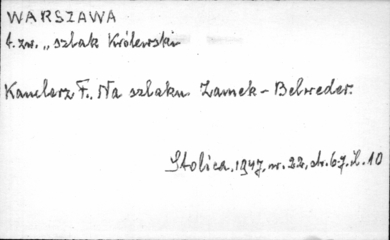 WARSZAWA
t.zw. „szlak Królewski
Kanclerz F. Na szlaku Zamek - Belweder.
Stolica. 1947. nr. 22, str. 6-7. il. 10